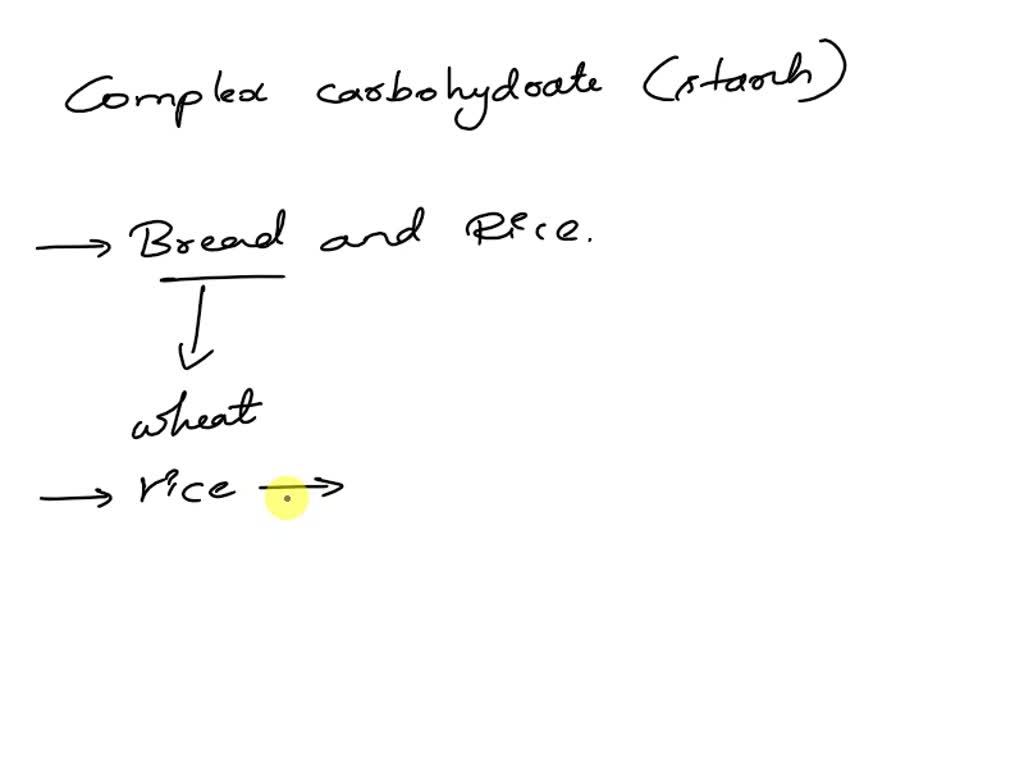 Complex carbohydrate (starch)
→ Bread and Rice.
↓
wheat
→ rice →